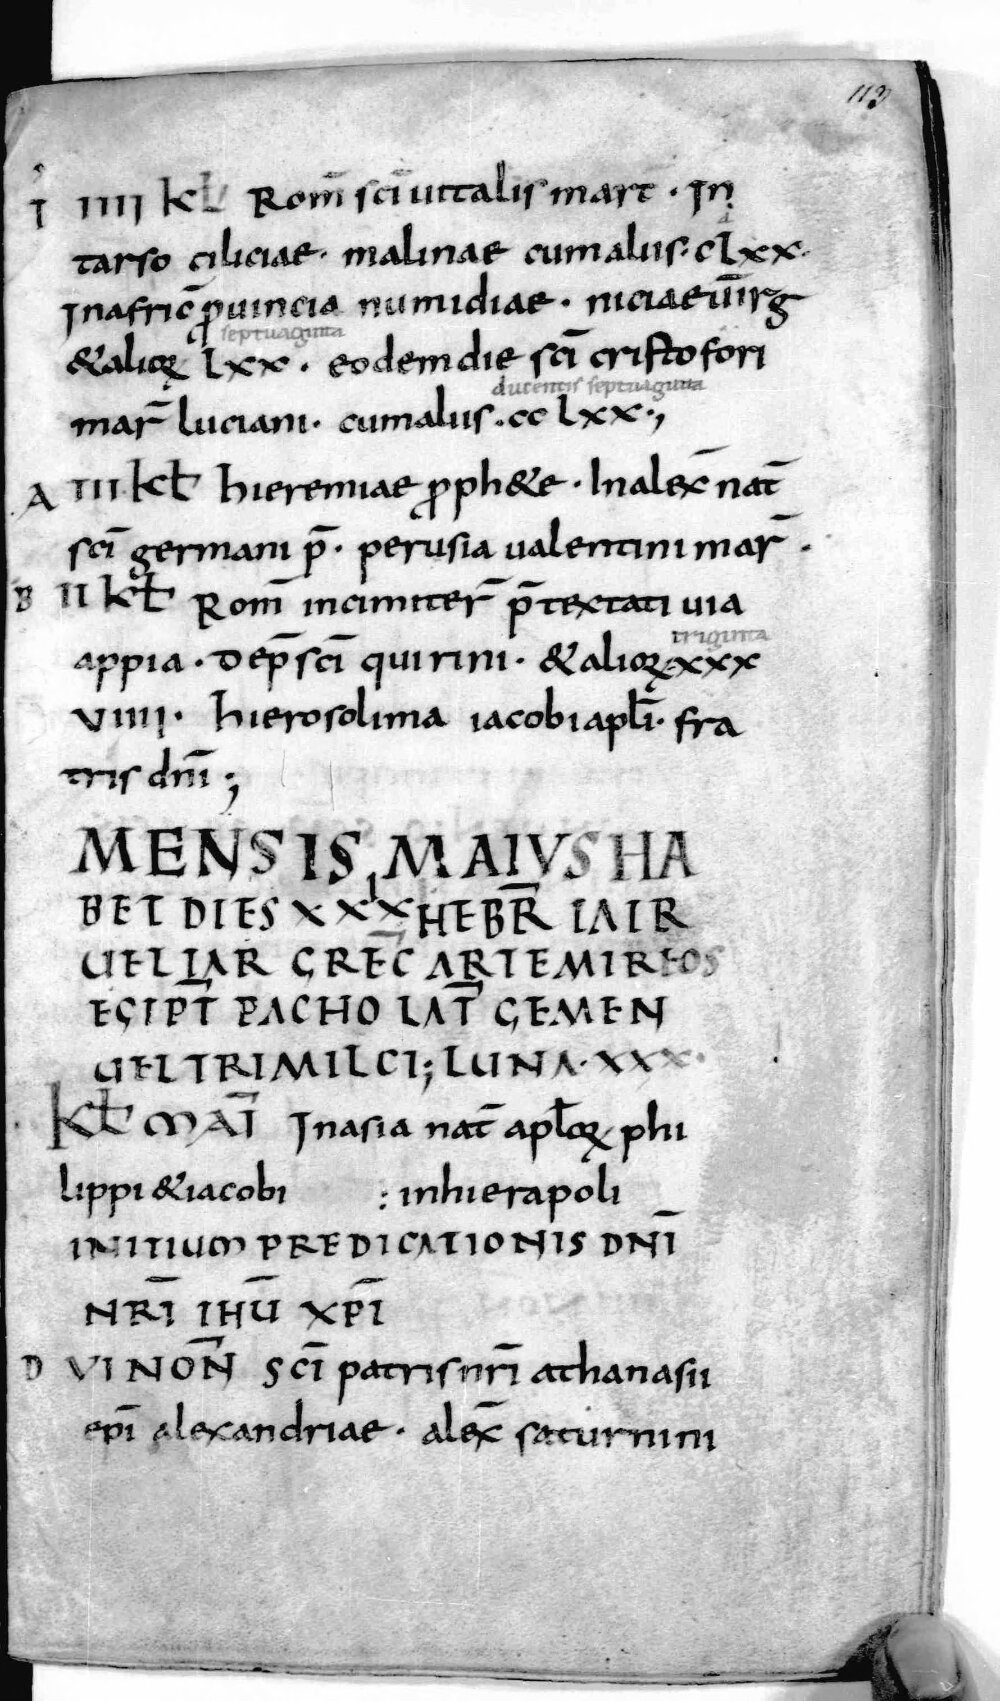 113
I IIII KL Rom̄ sc̄i uitalis mart · In
tarso ciliciae · malinae cumaliis · CLXX ·
In afric̄ ꝓuincia numidiae · niciae uīrg
septuaginta
&alioꝝ LXX · eodem die sc̄i cristofori
ducentis septuaginta
mar̄ luciani · cumaliis · cc Lxx ·,
A III kł hieremiae ꝓph&e · In alex̄ nat̄
sc̄i germani p̄ · perusia ualentini mar̄ ·
B II kł Rom̄ in cimiter̄ p̄textati uia
triginta
appia · Dep̄ sc̄i quirini · &alioꝝ xxx
VIIII · hierosolima iacobi apł̄i · fra
tris dn̄i ;
MENSIS MAIVS HA
BET DIES XXXI HEBER̄ IAIR
UEL IAR GREC̄ ARTEMIREOS
EGIPT̄ PACHO LAT̄ GEMEN
UEL TRIMILCI; LUNA · XXX ·
Kł MAĪ In asia nat̄ apłoꝝ phi
lippi &iacobi : in hierapoli
INITIUM PREDICATIONIS DN̄I
NR̄I IHŪ XP̄I
D VI NON̄ Sc̄i patris nr̄i athanasii
ep̄i alexandriae · alex̄ saturnini